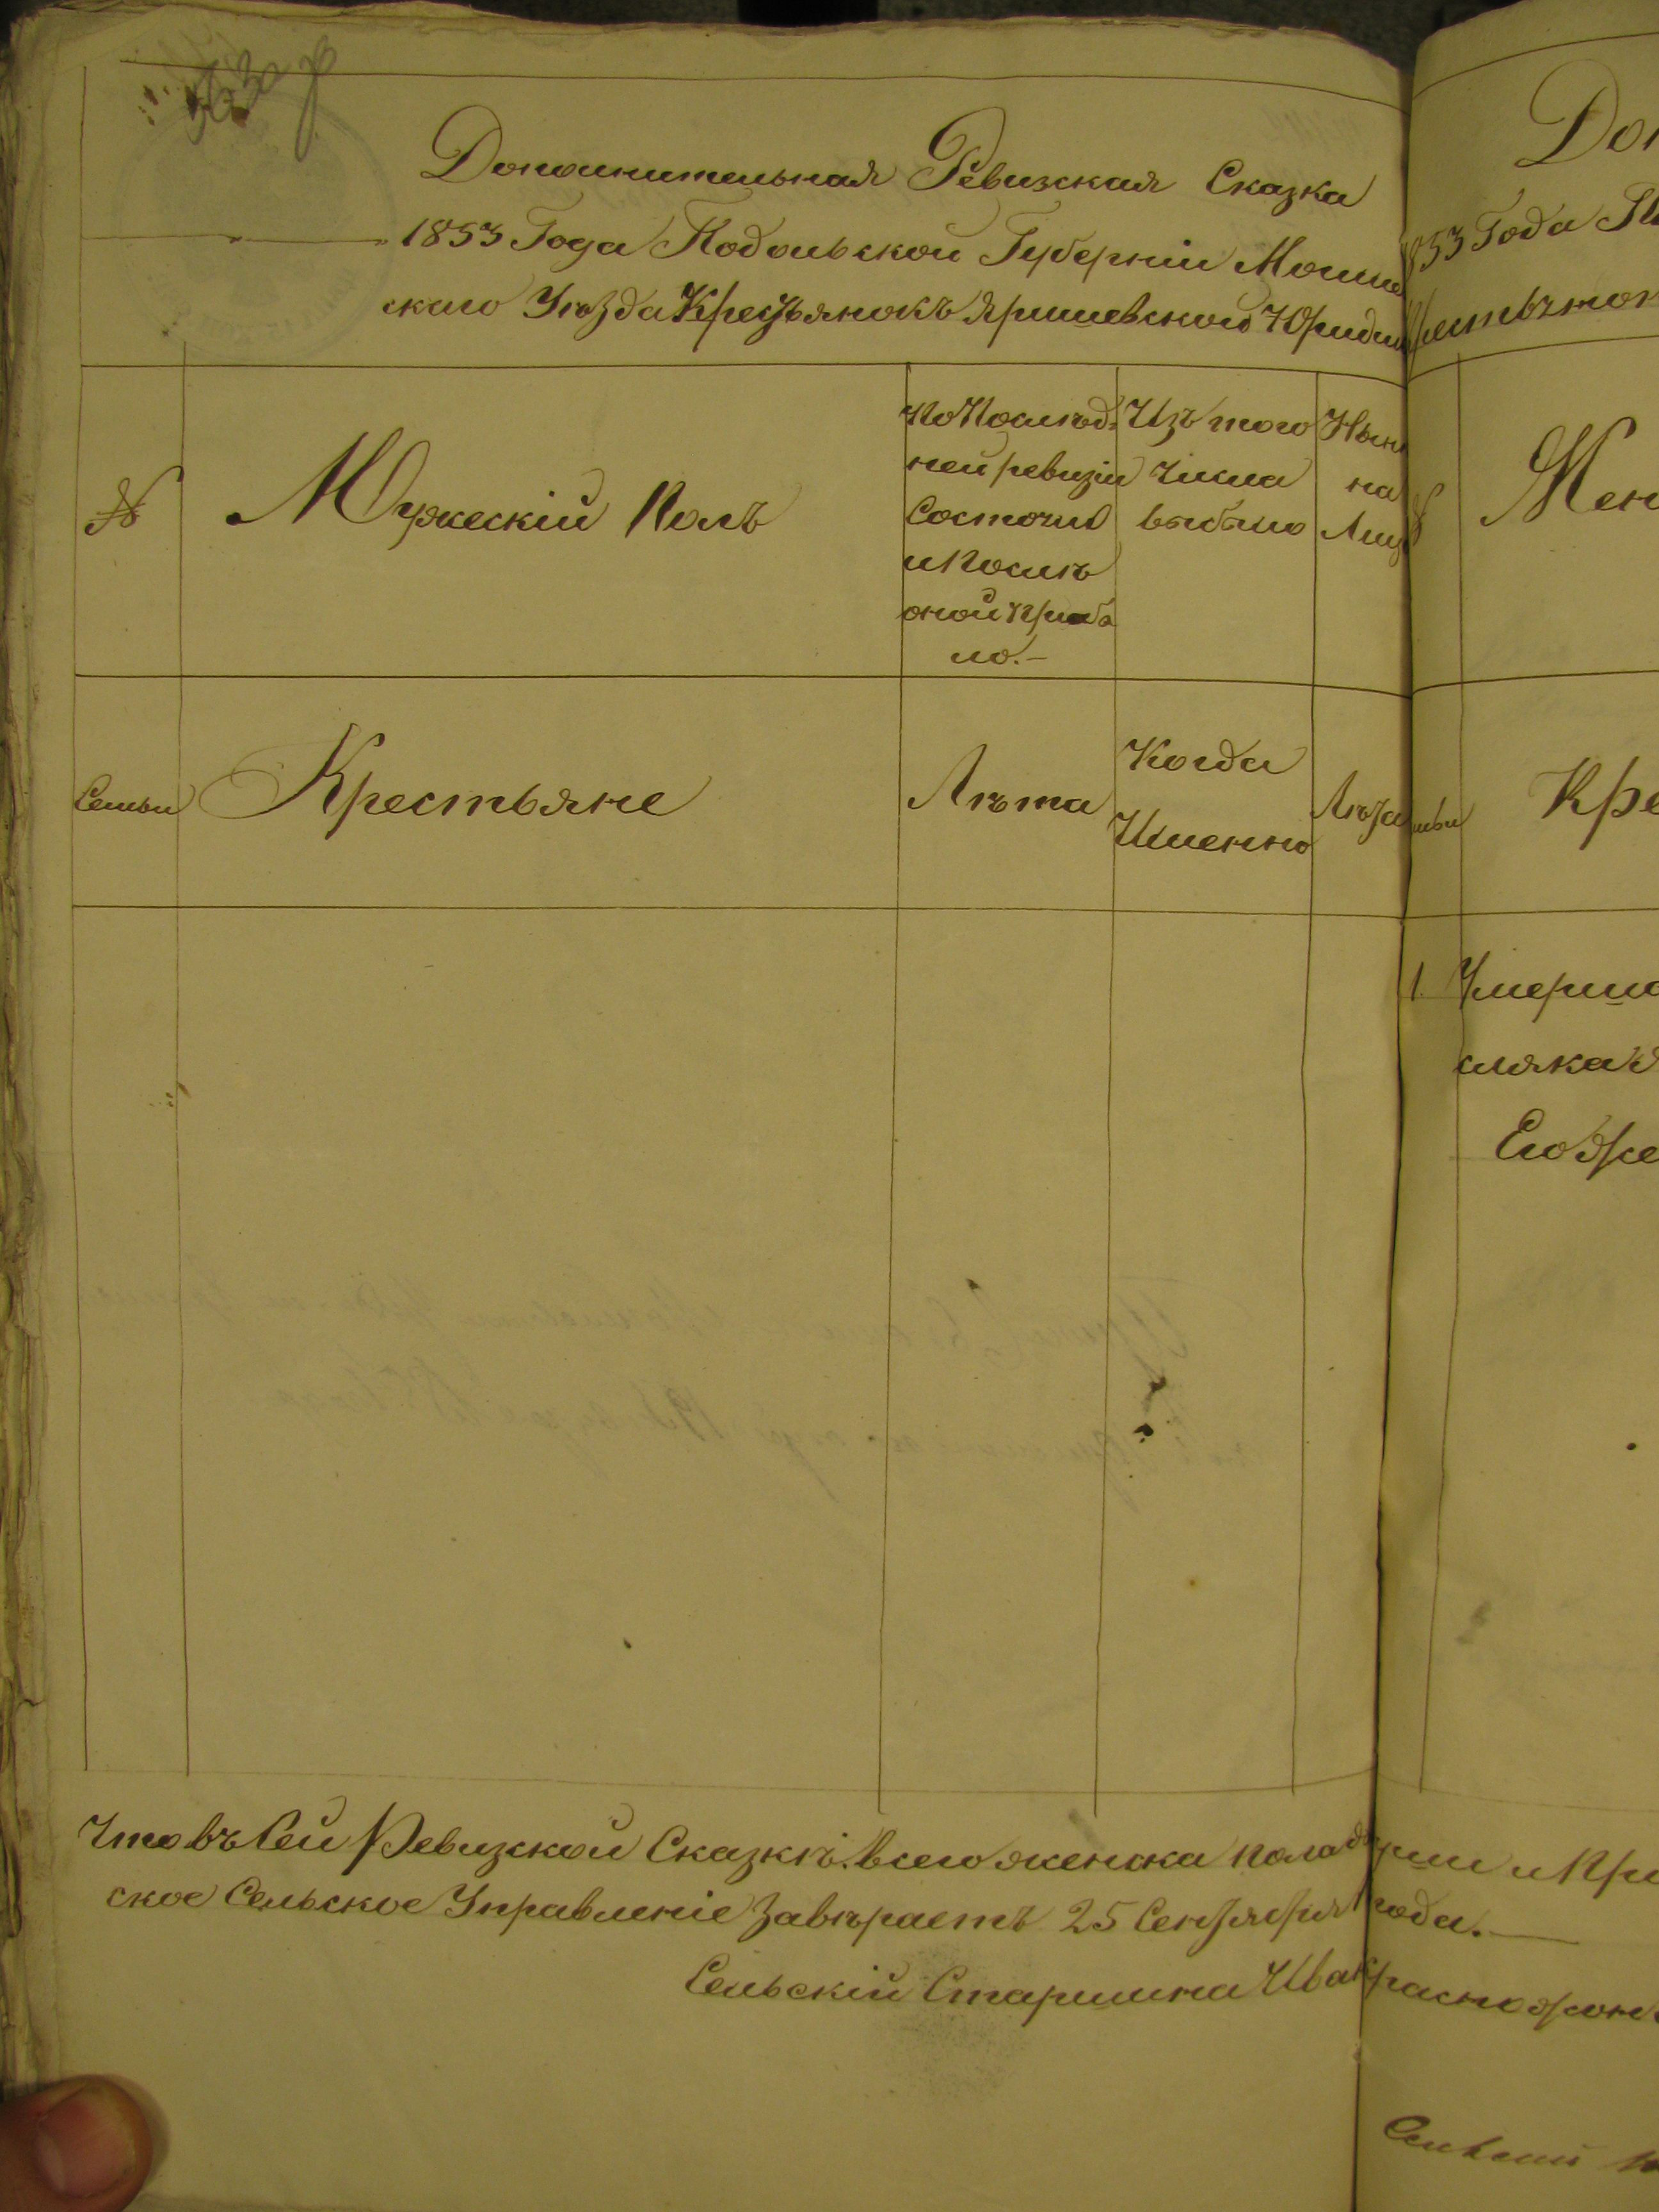 Дополнительная Ревизская Сказка
1853 Года Подольской Губерніи Могилев
скаго Уѣзда Крестьянокъ Яришевского Юридик
№
Мужескій Полъ
По Послѣд
ней ревизіи
Состояло
и после
оной прибы
ло.
Изъ того
числа
выбыло
Нын
на
Лиц
Семьи
Крестьяне
Лѣта
Когда
Именно
Лѣта
Что въ Сей Ревизкой Сказкѣ всего женска пола
ское Сельское Управленіе Завѣраетъ 25 Сентября
Сельскій Старшина Ива
Доп
853 Года П
Крестьянок
Жен
мьи
Кре
1 Умерша
сляка
Его же
и При
года.
Сельскій